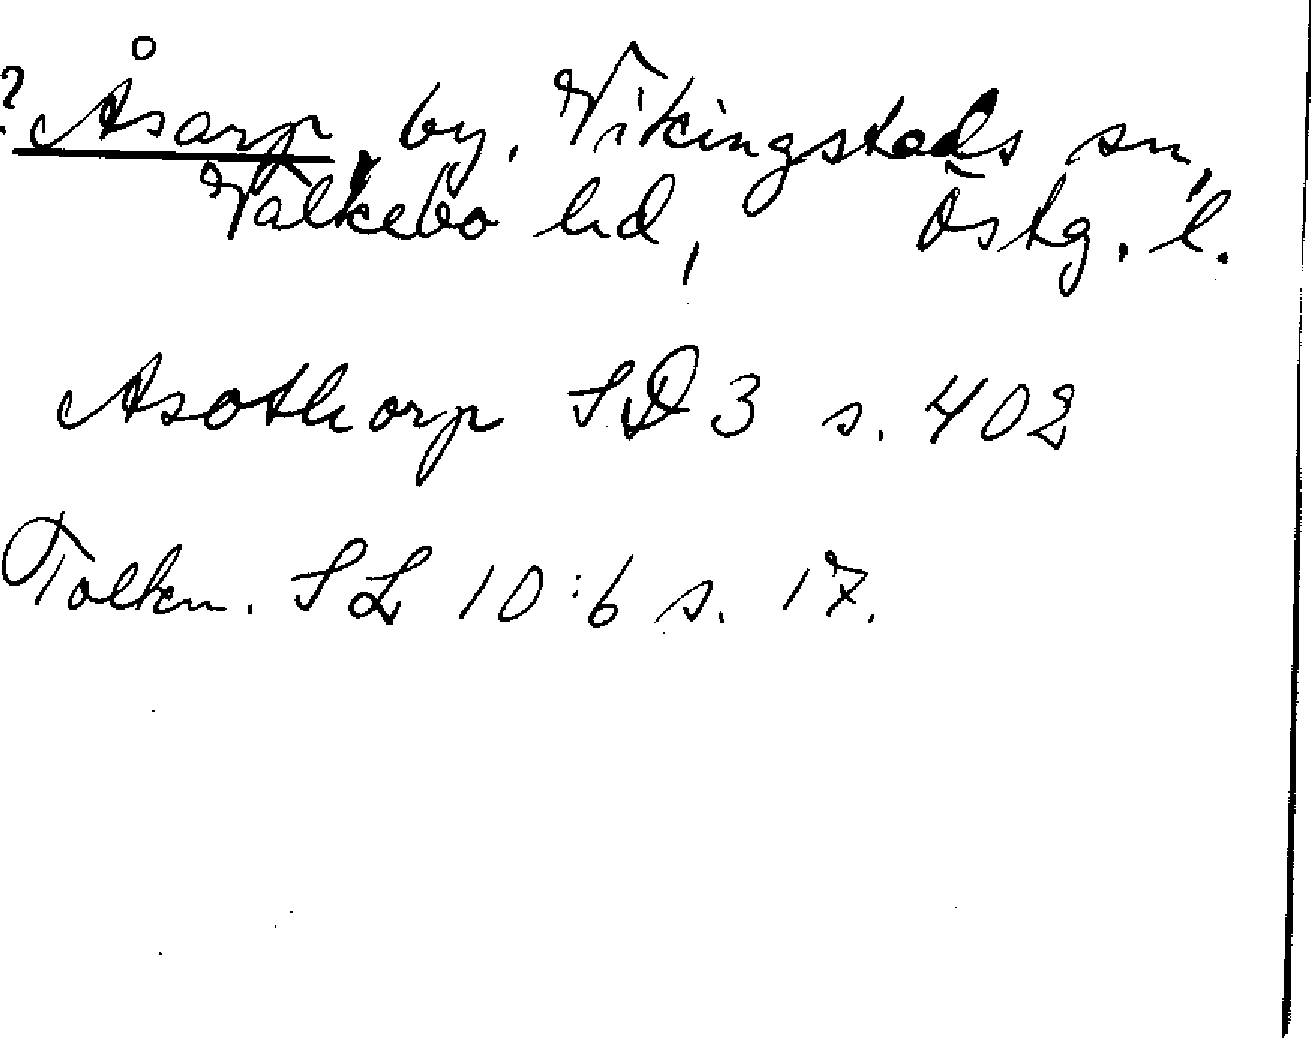 ? Åsarp, by, Vikingstads sn,
Valkebo hd, Östg. l.
Asothorp SD 3 s. 402
Tolkn. SL 10:6 s. 17.